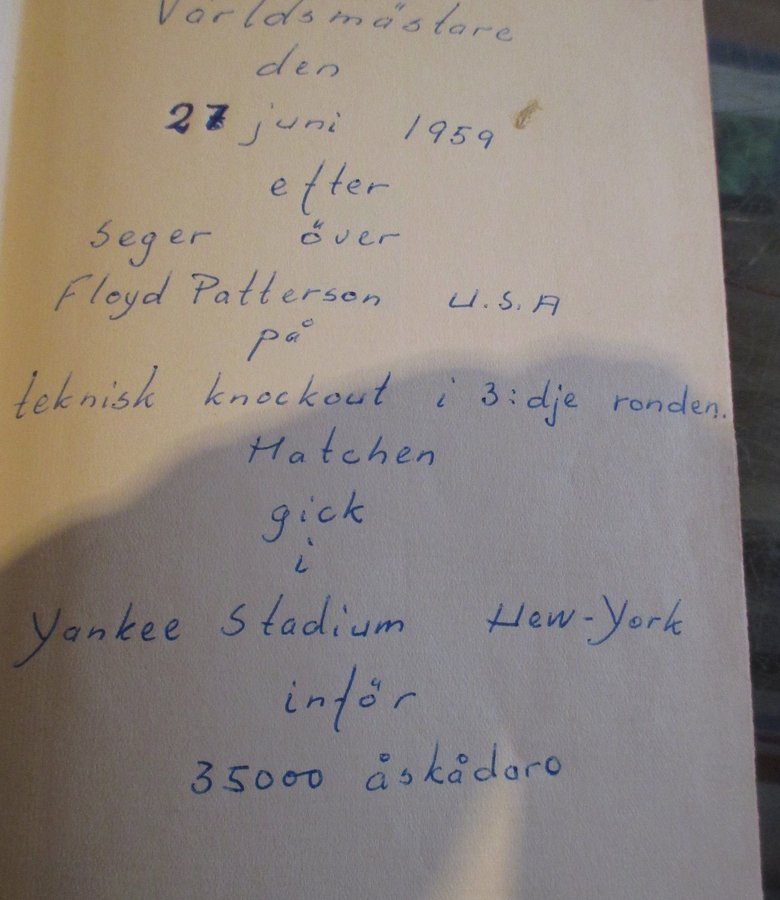 Världsmästare
den
27 juni 1959
efter
seger över
Floyd Patterson U.S.A
på
teknisk knockout i 3:dje ronden.
Matchen
gick
i
Yankee Stadium New-York
inför
35000 åskådaro